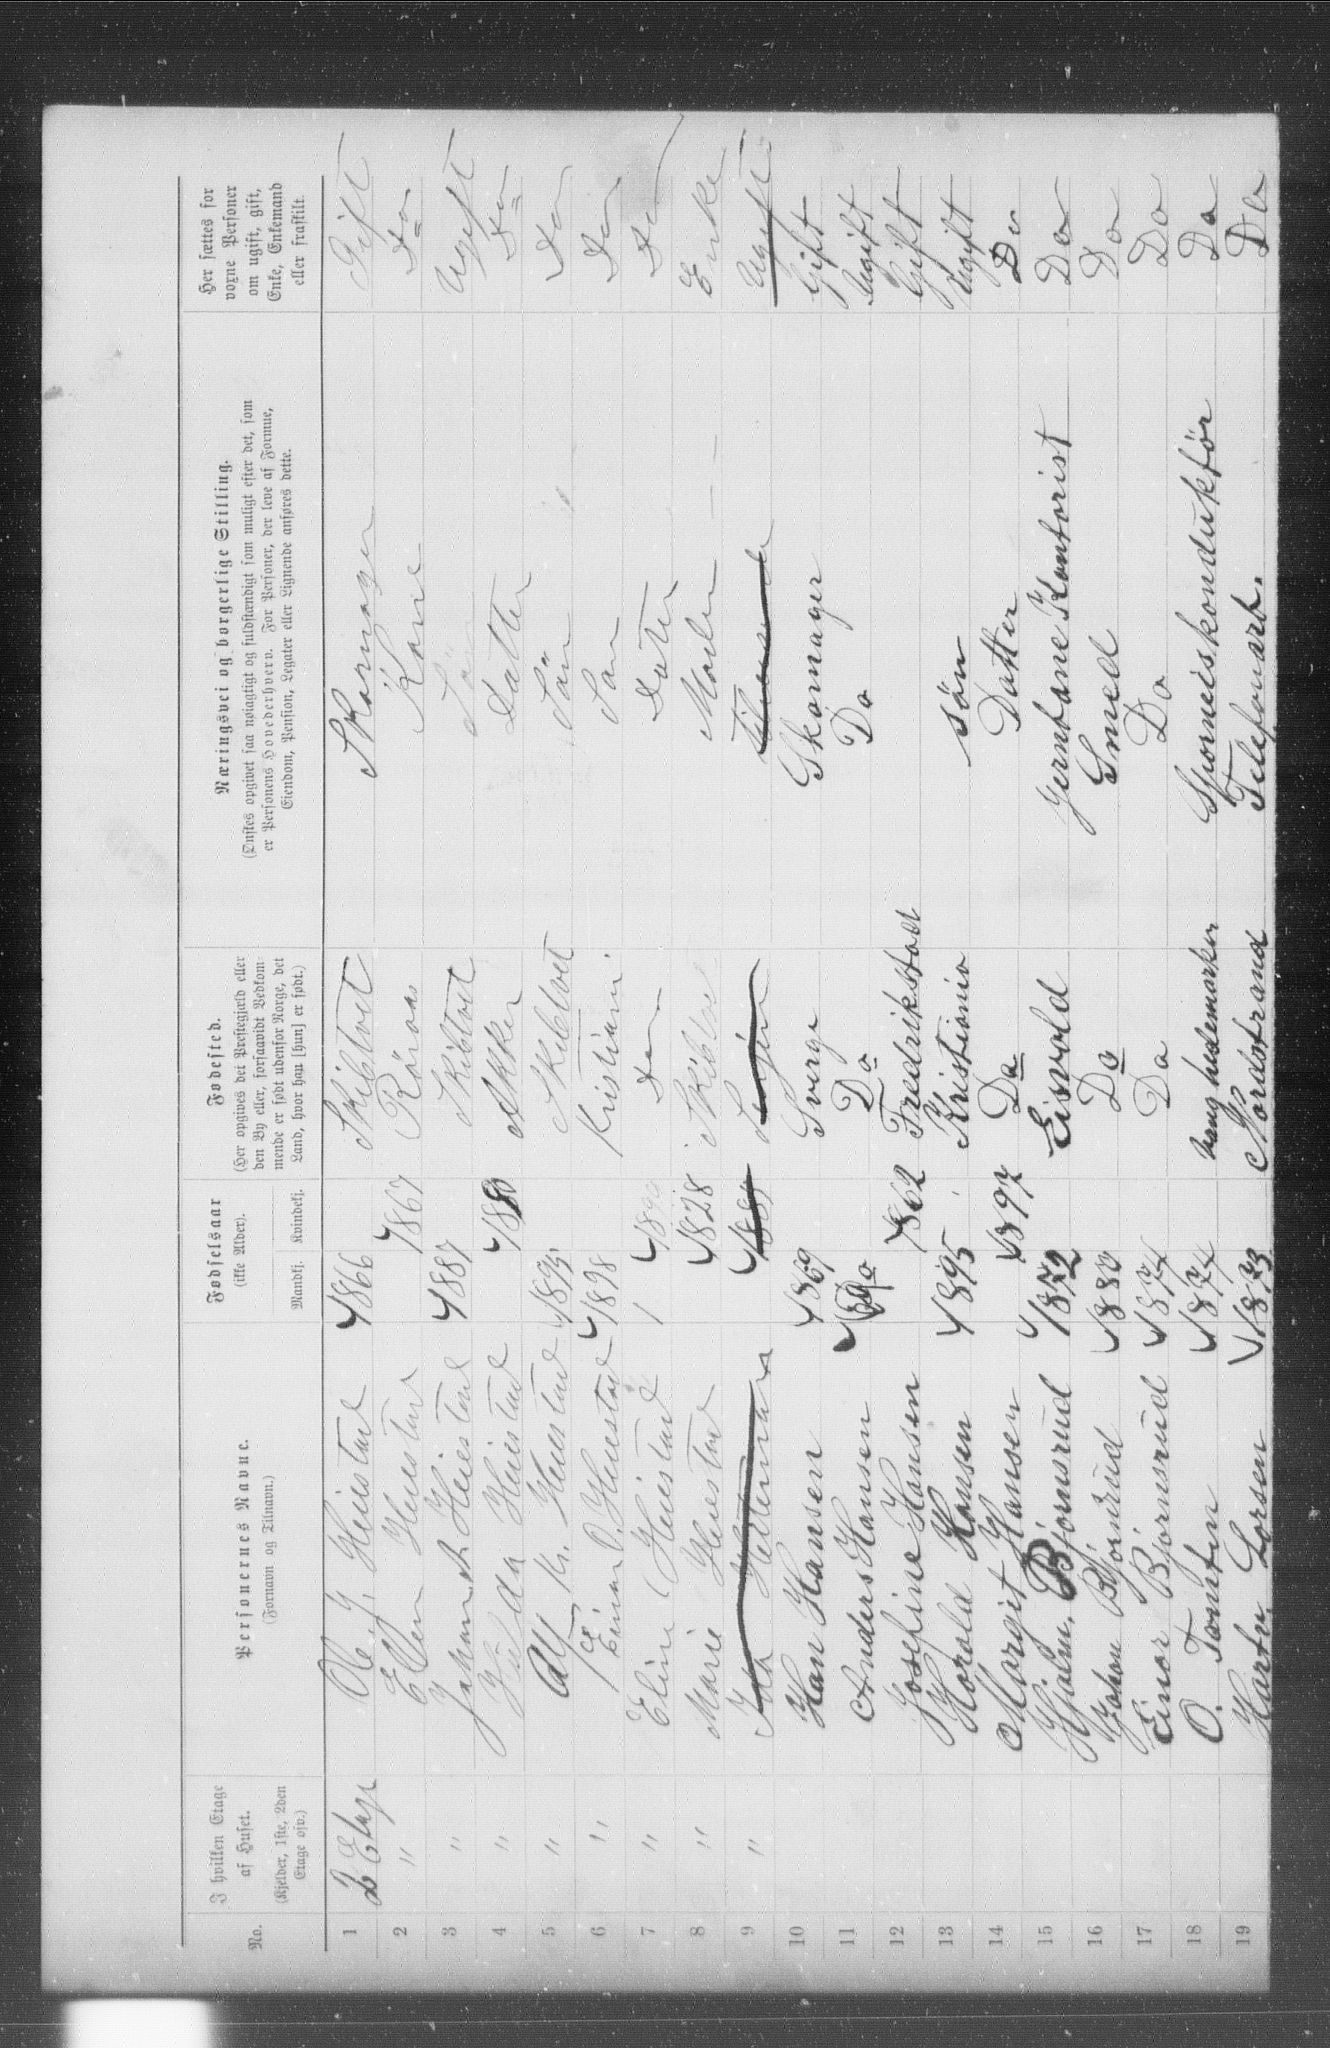 No. | I hvilken Etage af Huset. (Kjelder, 1ste, 2den Etage osv.) | Personernes Navne. (Fornavn og Tilnavn.) | Fødselsaar (ikke Alder). Mandkj. Kvindekj. | Fødested. (Her opgives det Prestegjæld eller den By eller, forsaavidt Vedkommende er født udenfor Norge, det Land, hvor han [hun] er født.) | Næringsvei og borgerlige Stilling. (Ønskes opgivet saa nøiagtigt og fuldstændigt som muligt efter det, som er Personens Hovederhverv. For Personer, der leve af Formue, Eiendom, Pension, Legater eller Lignende anføres dette.) | Her sættes for voxne Personer om ugift, gift, Enke, Enkemand eller fraskilt.
1 | 2 Etage | Ole J. Heiestad | 1866 | Skibtvet | Skomager | Gift
2 | " | Ellen Heiestad | 1867 | Röraas | Kone | Do
3 | " | Johan A. Heiestad | 1887 | Skibtvet | Sön | Ugift
4 | " | Hulda Heiestad | 1880 | Akker | Datter | Do
5 | " | Alf Kr. Heiestad | 1893 | Skibtvet | Sön | Do
6 | " | Einar O. Heiestad | 1898 | Kristiani | Sön | Do
7 | " | Eline Heiestad | 1890 | Do | Datter | Do
8 | " | Marie Heiestad | 1828 | Skibtvet | Moder | Enke
9 | " | Ida | Ugift
10 | Han Hansen | 1869 | Sverge | Skomager | Gift
11 | Anders Hansen | Do | Do | Ugift
12 | Josefine Hansen | 1862 | Fredrikstad | Gift
13 | Harald Hansen | 1895 | Kristiania | sön | Ugift
14 | Margit Hansen | 1897 | Do | Datter | Do
15 | Hjalm. Bjørnsrud | 1872 | Eisvold | Jernbane Kontorist | Do
16 | Johan Bjørnsrud | 1880 | Do | Smed | Do
17 | Einar Bjornsrud | 1874 | Do | Do | Do
18 | O. Tomten | 1874 | vang hedemarken | Sporveiskonduktör | Do
19 | Hartv. Larsen | 1873 | Nordstrand | Telefonarb. | Do